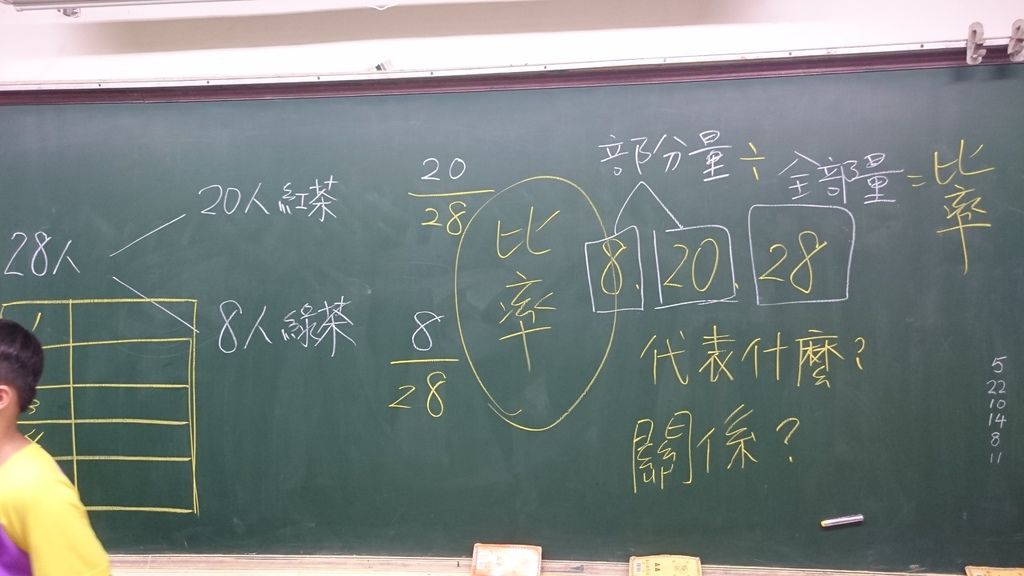 28人
20人紅茶
8人綠茶
1
3
20
28
8
28
比
率
部分量÷全部量=比
率
8、20、28
代表什麼?
關係?
5
22
10
14
8
11